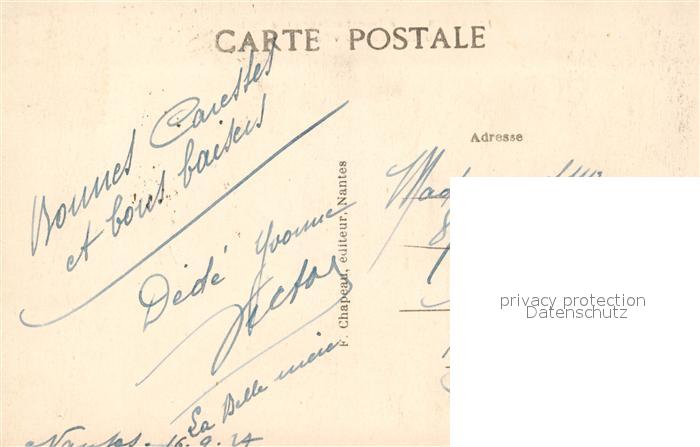 CARTE POSTALE
Bonnes Caresses
et bons baisers
Dédé Yvonne
Victor
La Belle mère
Nantes 16.9.24
F. Chapeau, éditeur, Nantes
Adresse
privacy protection
Datenschutz